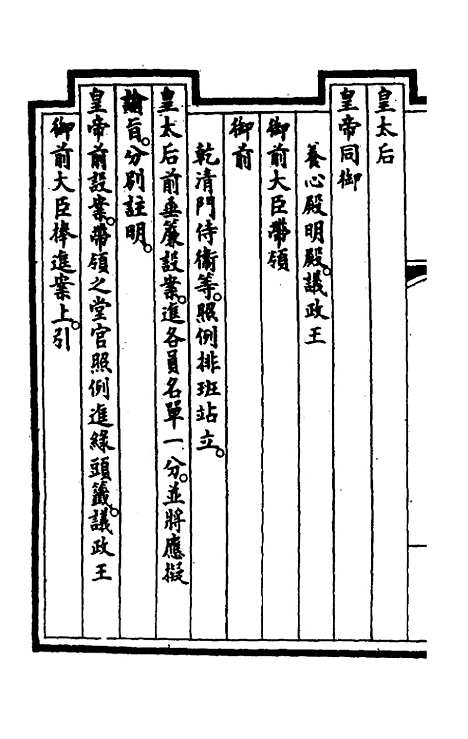 皇太后
皇帝同御
養心殿明殿。議政王
御前大臣帶領
御前
乾清門侍衛等。照例排班站立。
皇太后前垂簾設案。進各員名單一分。並將應擬
諭旨。分別註明。
皇帝前設案。帶領之堂官照例進綠頭籤。議政王
御前大臣捧進案上。引